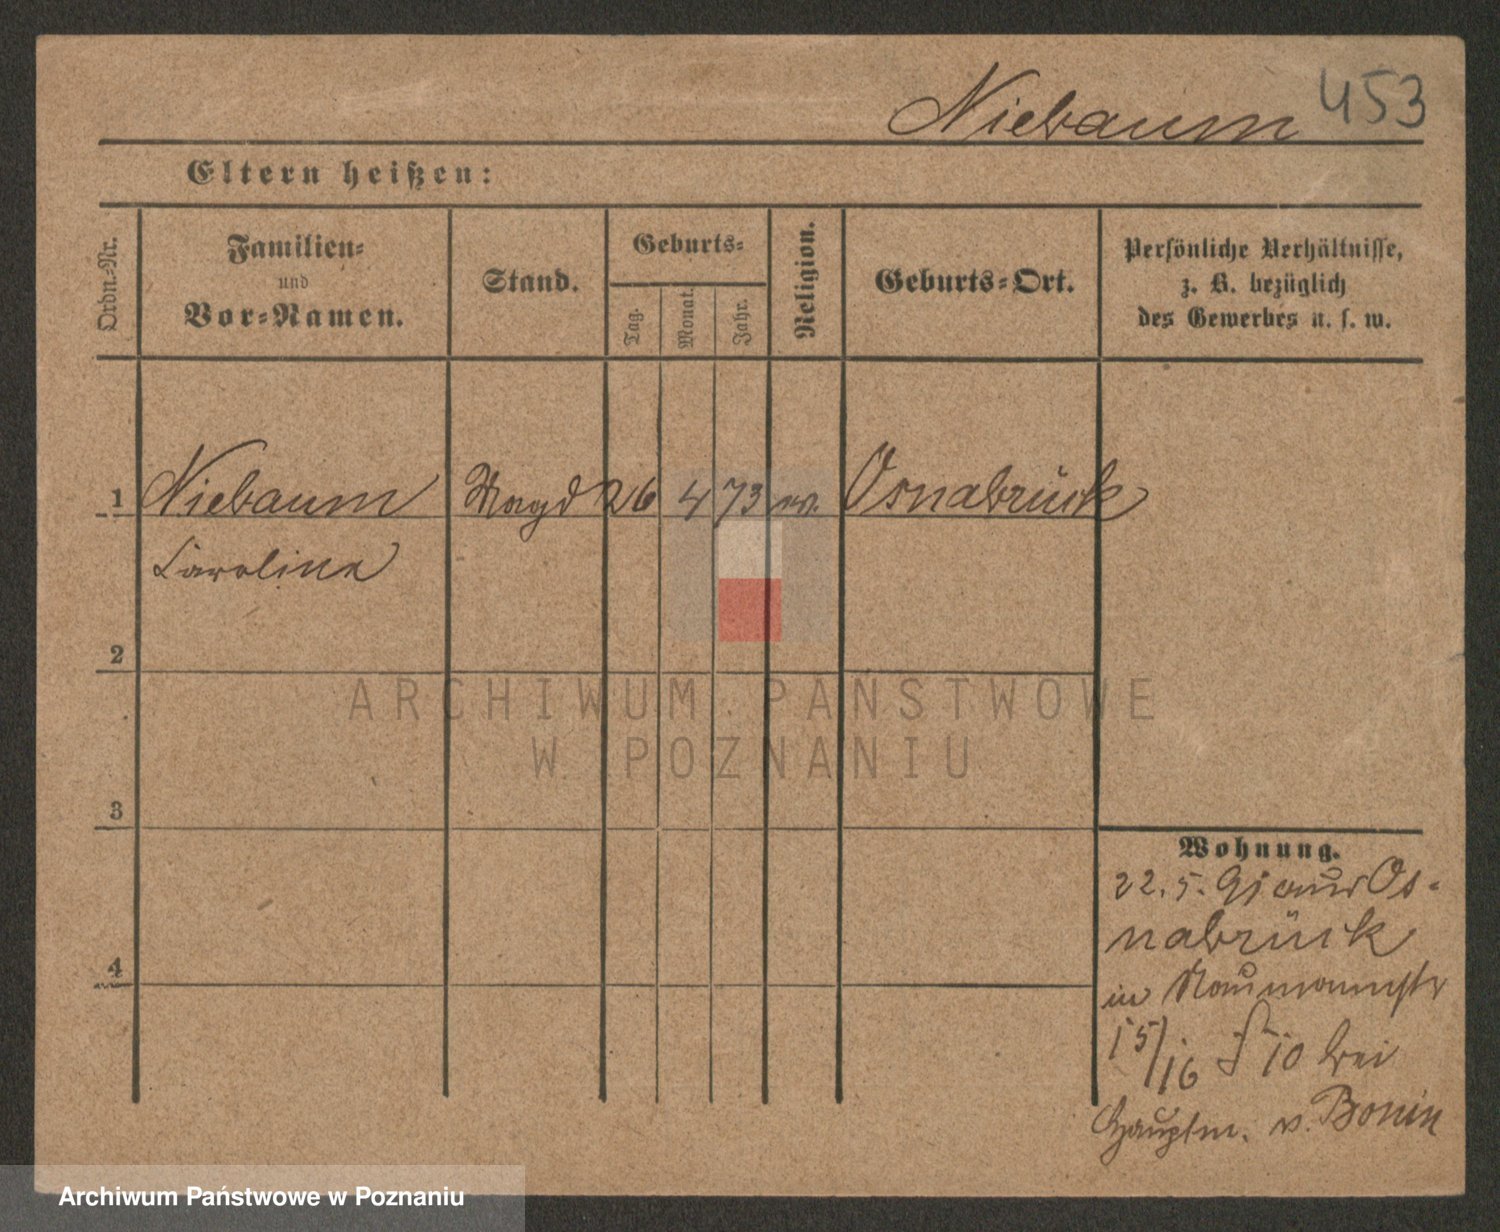 Niebaum 453
Eltern heißen:
Ordn.-Nr.
Familien-
und
Vor-Namen.
Stand.
Geburts-
Tag.
Monat.
Jahr.
Religion.
Geburts-Ort.
Persönliche Verhältnisse,
z. B. bezüglich
des Gewerbes u. s. w.
1 Niebaum Magd 26 4 73 ev. Osnabrück
Caroline
2
3
4
Wohnung.
22. 5. 91 aus Os-
nabrück
in Naumannstr
15/16 10 bei
Hauptm. v. Bonin
ARCHIWUM PAŃSTWOWE
W POZNANIU
Archiwum Państwowe w Poznaniu